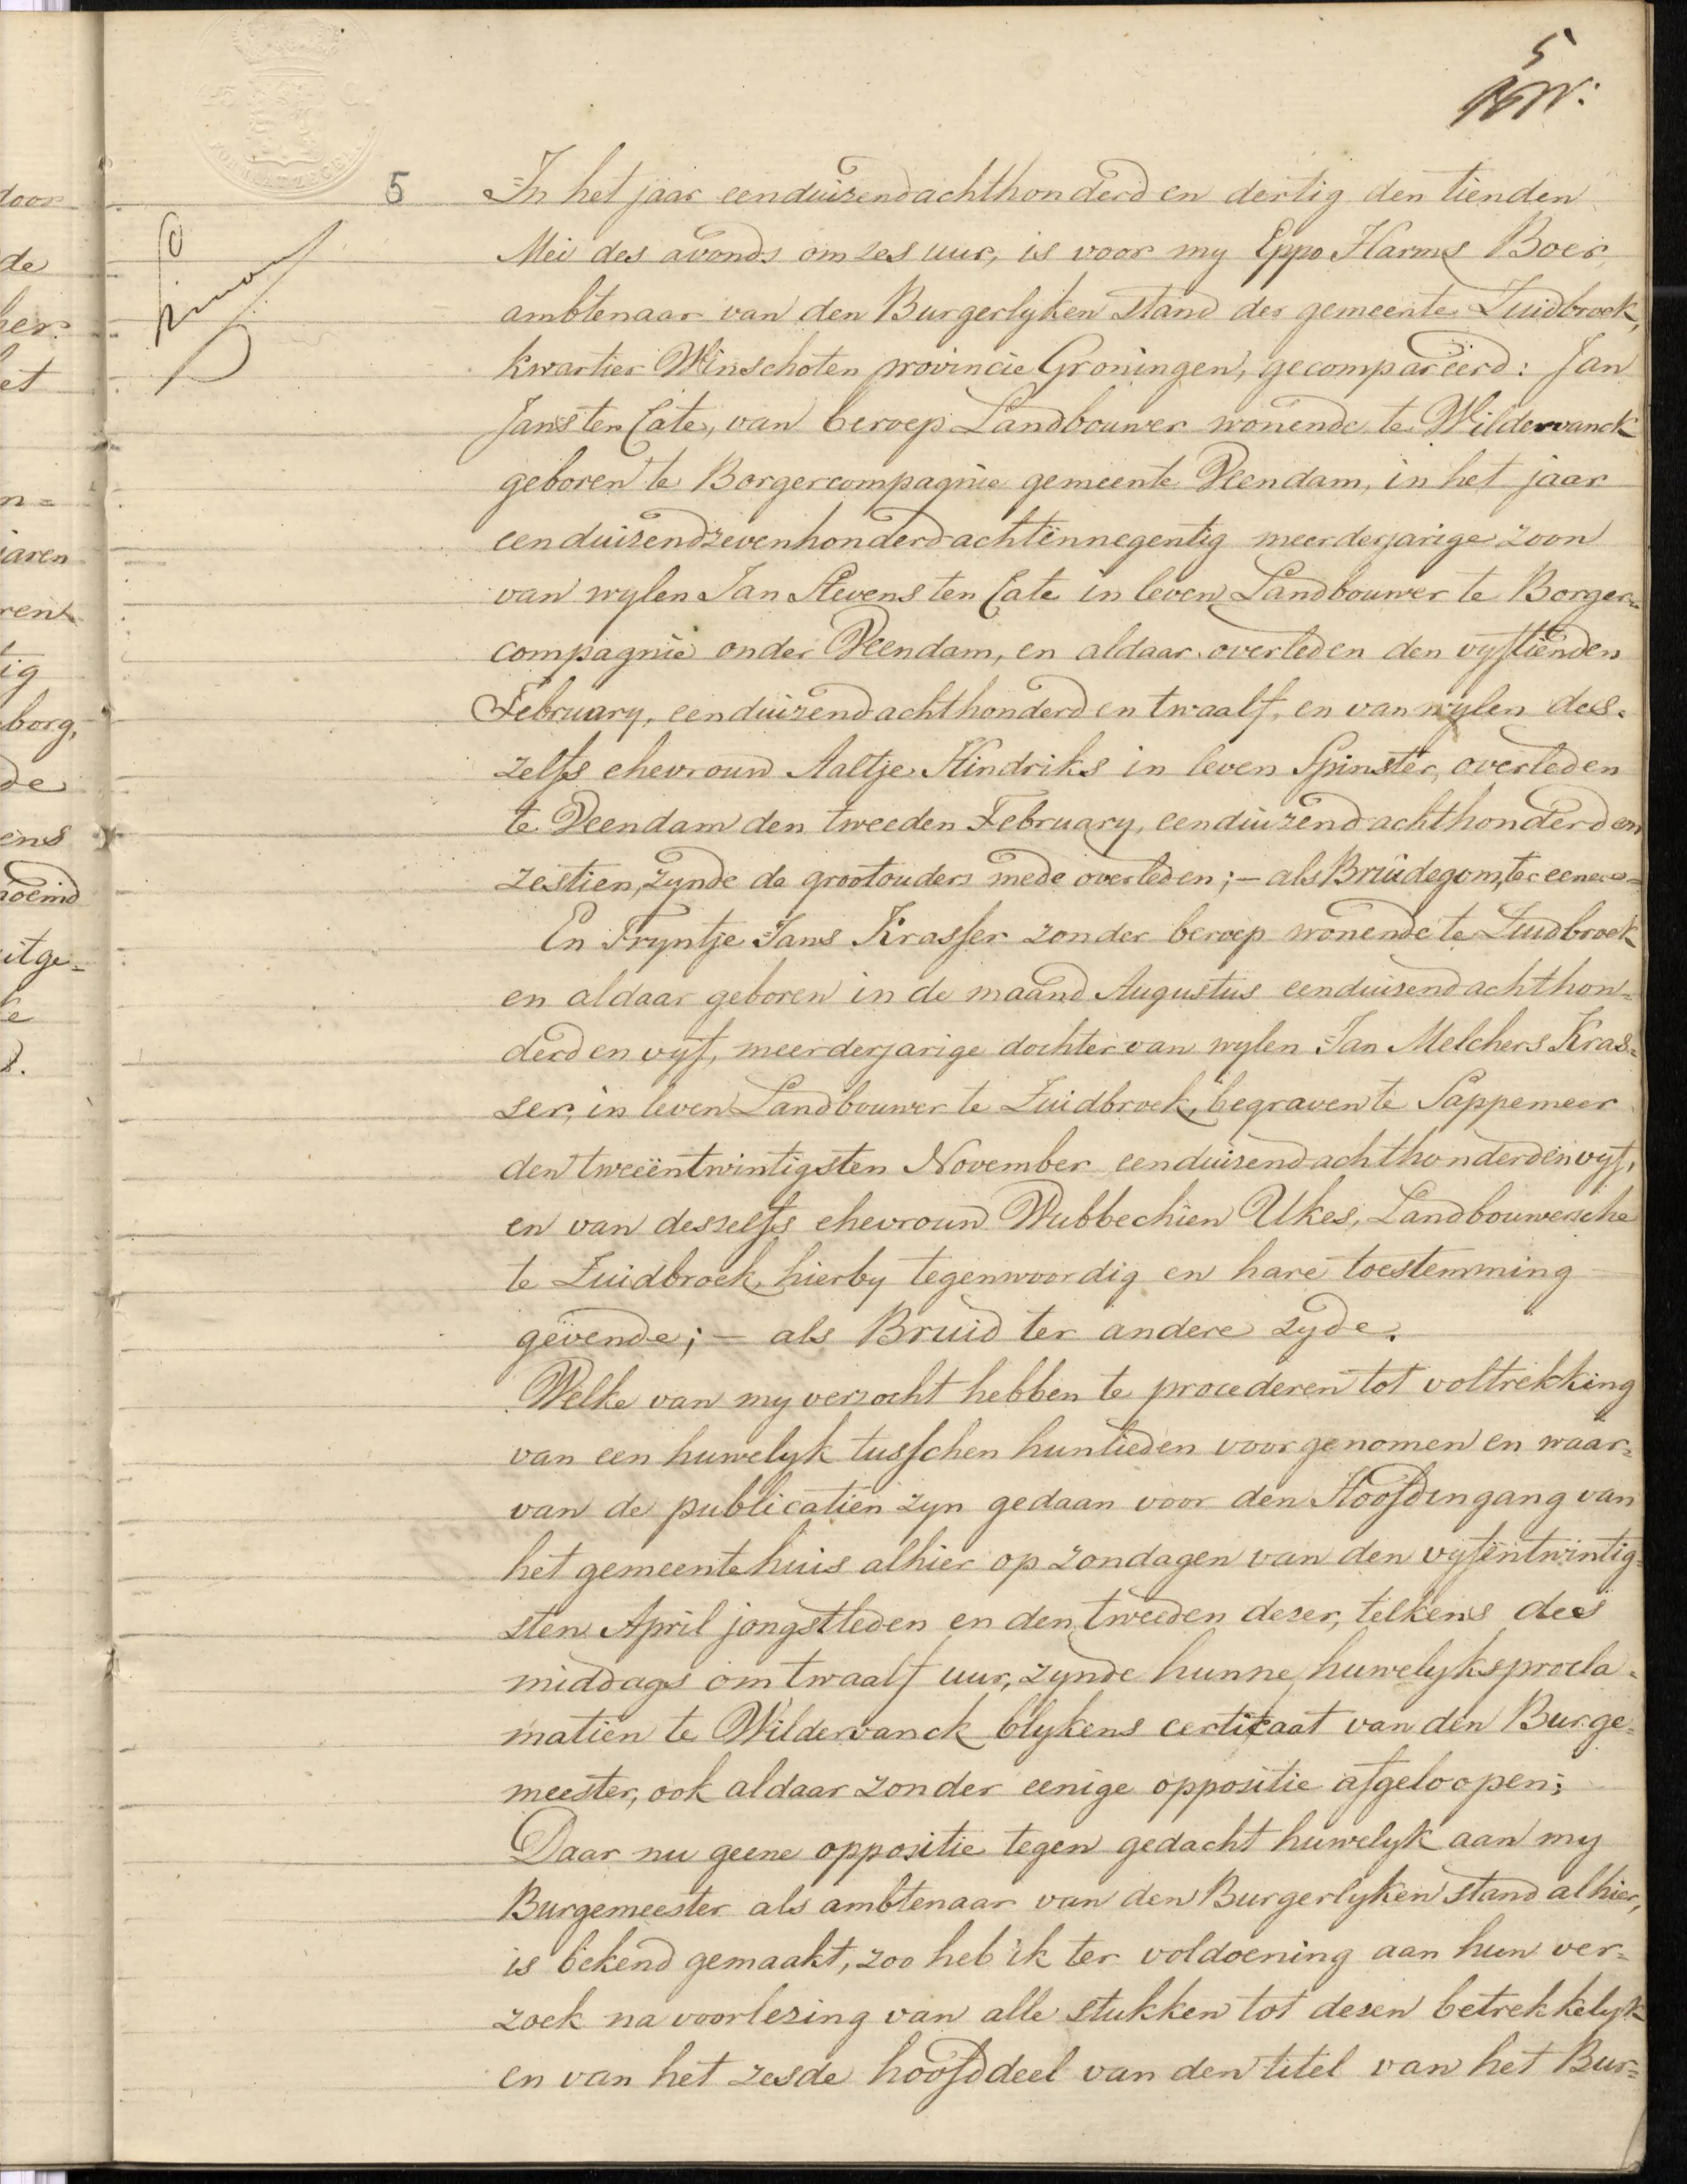 5
5
In het jaar eenduizendachthonderd en dertig den tienden
Mei des avonds om zes uur, is voor my Eppo Harms Boer
ambtenaar van den Burgerlyken stand der gemeente Zuidbroek,
kwartier Winschoten provincie Groningen, gecompareerd: Jan
Jans ten Cate, van beroep Landbouwer wonende te Wildervanck
geboren te Borgercompagnie gemeente Veendam, in het jaar
eenduizendzevenhonderdachtënnegentig meerderjarige zoon
van wylen Jan Stevens ten Cate in leven Landbouwer te Borger=
compagnie onder Veendam, en aldaar overleden den vyftienden
February, eenduizendachthonderd en twaalf, en van wylen des=
zelfs ehevrouw Aaltje Hindriks in leven Spinster, overleden
te Veendam den tweeden February, eenduizendachthonderd en
zestien, zynde de grootouders mede overleden; – als Bruidegom, ter eenre=
En Tryntje Jans Krasser zonder beroep wonende te Zuidbroek
en aldaar geboren in de maand Augustus eenduizendachthon=
derd en vyf, meerderjarige dochter van wylen Jan Melchers Kras=
ser, in leven Landbouwer te Zuidbroek, begraven te Sappemeer
den tweeëntwintigsten November eenduizendachthonderdenvyf,
en van deszelfs ehevrouw Wubbechien Ukes, Landbouwersche
te Zuidbroek, hierby tegenwoordig en hare toestemming
gevende; – als Bruid ter andere zyde.
Welke van my verzocht hebben te procederen tot voltrekking
van een huwelyk tusschen hunlieden voorgenomen en waar=
van de publicatien zyn gedaan voor den Hoofdingang van
het gemeentehuis alhier op zondagen van den vyfëntwintig=
sten April jongstleden en den tweeden dezer, telkens des
middags om twaalf uur, zynde hunne huwelyksprocla=
matien te Wildervanck blykens certificaat van den Burge=
meester, ook aldaar zonder eenige oppositie afgeloopen;
Daar nu geene oppositie tegen gedacht huwelyk aan my
Burgemeester als ambtenaar van den Burgerlyken stand alhier,
is bekend gemaakt, zoo heb ik ter voldoening aan hun ver=
zoek na voorlezing van alle stukken tot dezen betrekkelyk
en van het zesde hoofddeel van den titel van het Bur=